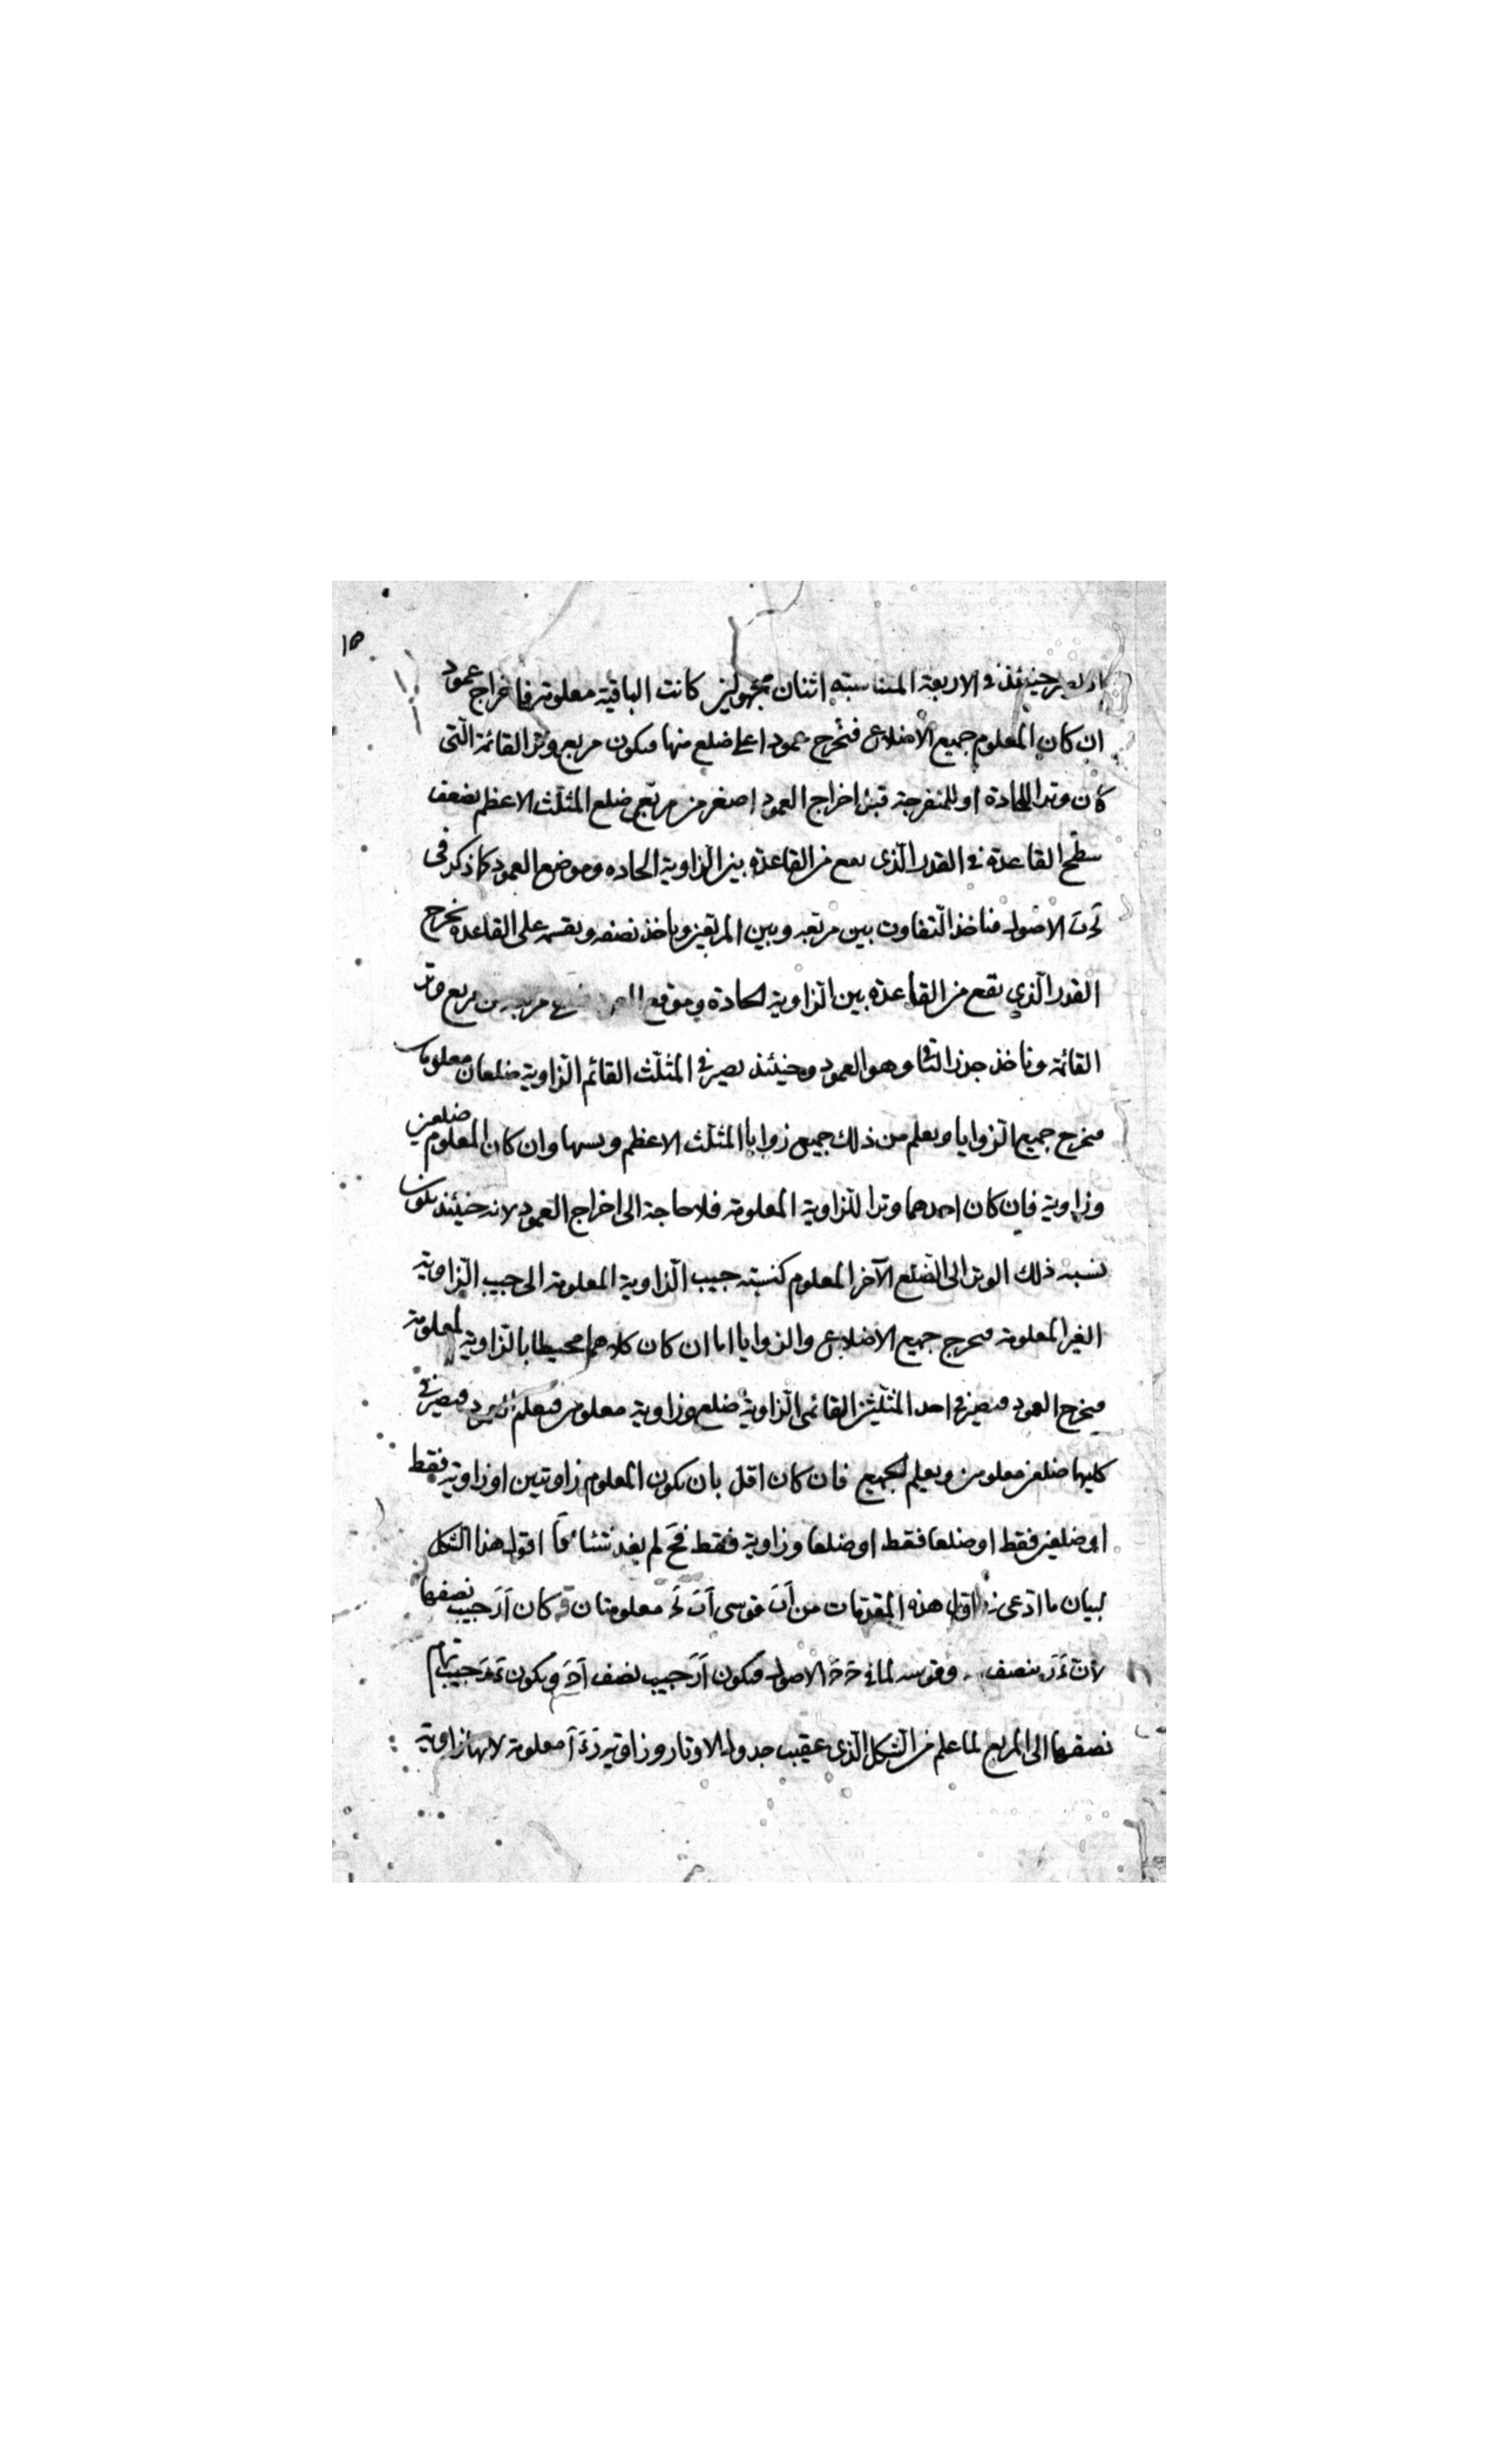 ١٥
حينئذ في الاربعة المتناسبة اثنان مجهولين كانت الباقية معلومة فاخراج عمود
ان كان المعلوم جميع الاضلاع فنخرج عمودا على ضلع منها فيكون مربع وتر القائمة التي
كان وتدا للحادة او للمنفرجة قبل اخراج العمود اصغر من مربعي ضلع المثلث الاعظم بضعف
سطح القاعدة في القدر الذي يقع من القاعدة بين الزاوية الحاده وموضع العمود كما ذكر في
الاصول فناخذ التفاوت بين مربعه وبين المربعين وناخذ نصفه ونقسمه على القاعدة نخرج
القدر الذي يقع من القاعدة بين الزاوية الحادة وموقع مربع وتر
القائمة وناخذ جذر الباقي وهو العمود وحينئذ يصير في المثلث القائم الزاوية ضلعان معلومان
فنخرج جميع الزوايا ويعلم من ذلك جميع زوايا المثلث الاعظم وان كان المعلوم ضلعين
وزاوية فان كان احدهما وترا للزاوية المعلومة فلا حاجة الى اخراج العمود لانه حينئذ يكون
نسبة ذلك الوتر الى الضلع الآخر المعلوم كنسبة جيب الزاوية المعلومة الى جيب الزاوية
الغير المعلومة فنخرج جميع الاضلاع والزوايا اما ان كان كلاهما محيطا بالزاوية المعلومة
فنخرج العمود فيصير في احد المثلثين القائمي الزاوية ضلع وزاوية معلومين فيعلم العمود فيصير في
كليهما ضلعين معلومين ويعلم الجميع فان كان اقل بان يكون المعلوم زاويتين او زاوية فقط
او ضلعين فقط او ضلعا فقط او ضلعا وزاوية فقط فح لم يفد شيئا اقول هذا الشكل
لبيان ما ادعى اول هذه المقدمات من قوسي معلومتان كان ا‌ر جيب نصفها
لان ينصف وقوسه لما في الاصول فيكون ا‌ر جيب نصف ويكون جيب تمام
نصفها الى الربع لما علم من الشكل الذي عقيب جدول الاوتار وزاوية معلومة لانها زاوية